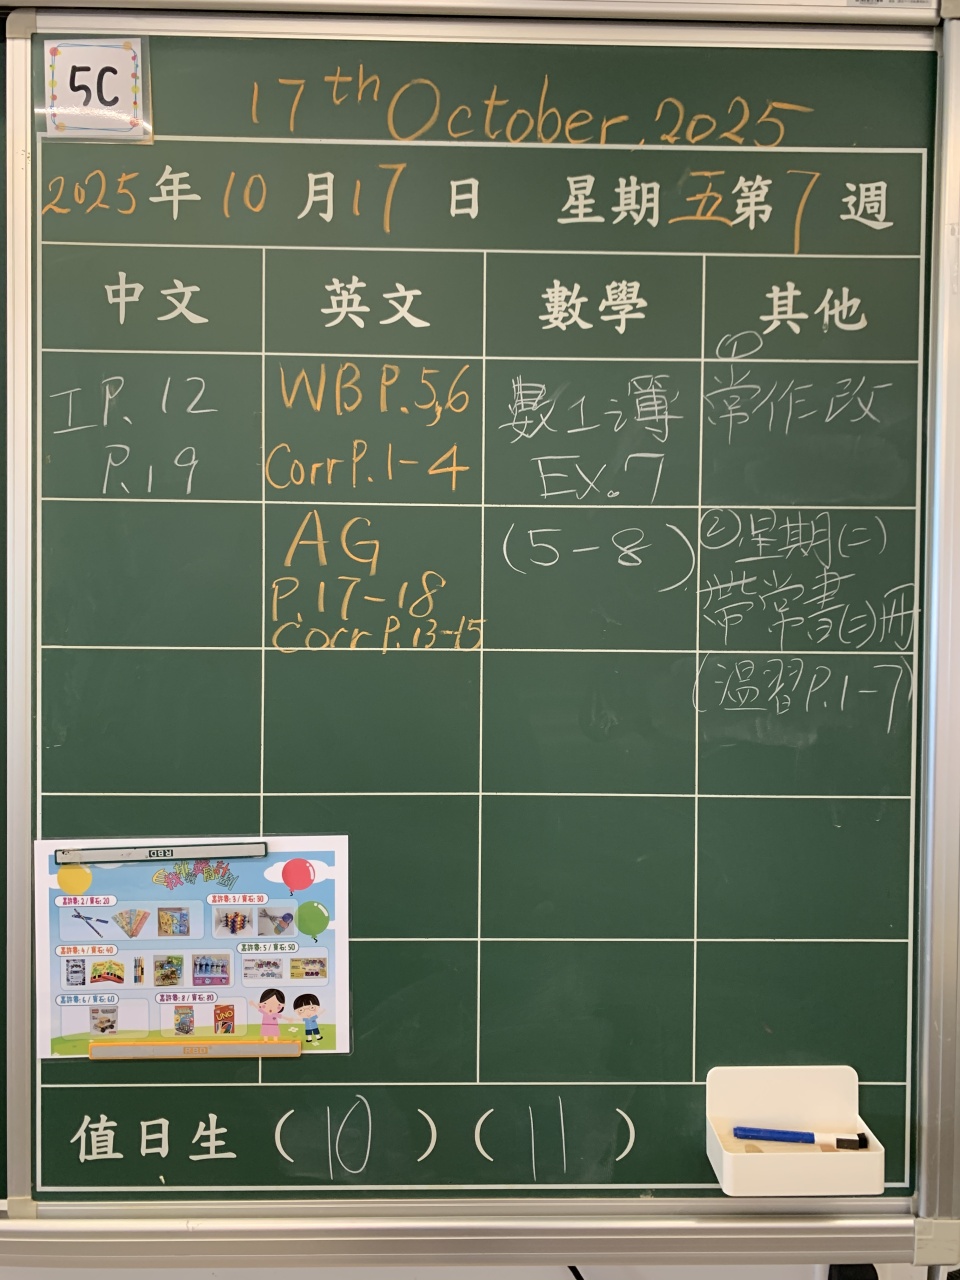 5C
17th October, 2025
2025年10月17日 星期五第7週
中文 英文 數學 其他
工P. 12
P.19
WB P.5,6
Corr P.1-4
AG
P.17-18
Corr P.13-15
數工簿
Ex.7
(5-8)
①
常作改
②星期(二)
帶常書(二)冊
(溫習P.1-7)
嘉許章: 2 / 寶石: 20
嘉許章: 3 / 寶石: 30
嘉許章: 4 / 寶石: 40
嘉許章: 5 / 寶石: 50
嘉許章: 6 / 寶石: 60
嘉許章: 8 / 寶石: 80
UNO
值日生 (10) (11)